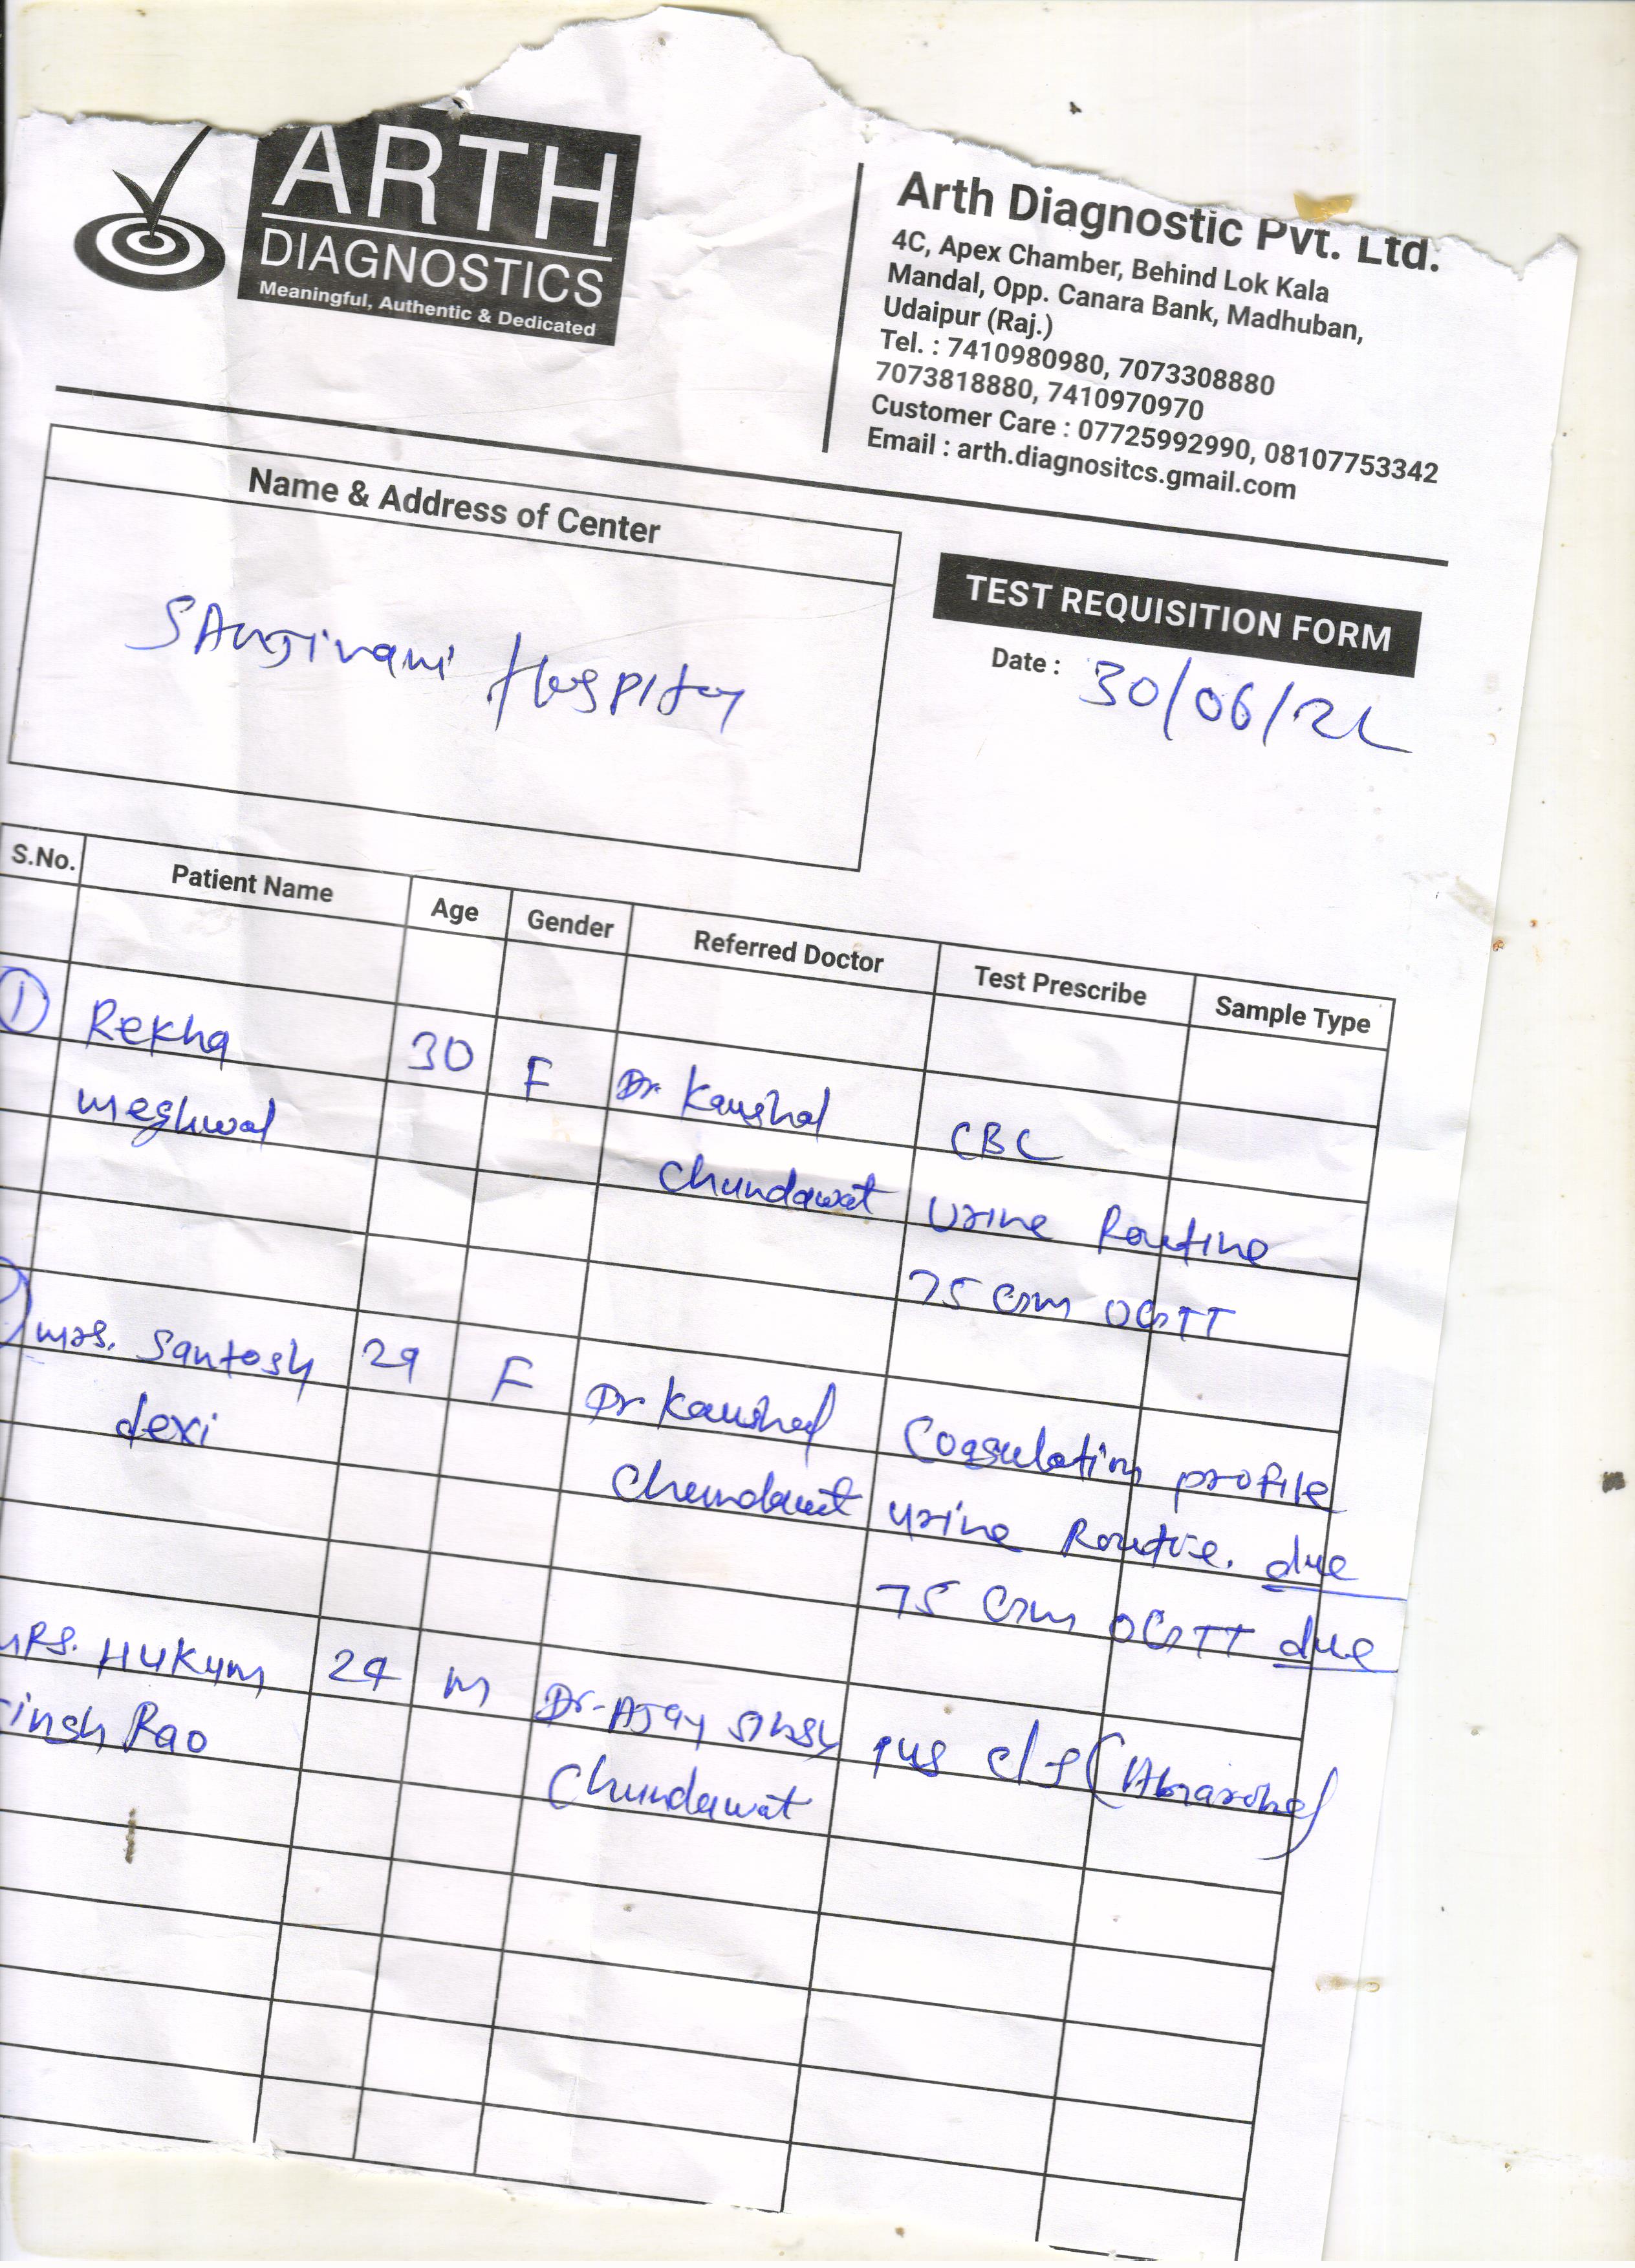 ARTH
DIAGNOSTICS
Meaningful, Authentic & Dedicated
Arth Diagnostic Pvt. Ltd.
4C, Apex Chamber, Behind Lok Kala
Mandal, Opp. Canara Bank, Madhuban,
Udaipur (Raj.)
Tel. : 7410980980, 7073308880
7073818880, 7410970970
Customer Care : 07725992990, 08107753342
Email : arth.diagnositcs.gmail.com
Name & Address of Center
SAnjivani Hospital
TEST REQUISITION FORM
Date : 30/06/22
S.No. Patient Name Age Gender Referred Doctor Test Prescribe Sample Type
1 Rekha 30 F Dr Kaushal CBC
meghwal Chundawat Urine Routine
75 Gm OGTT
mrs. Santosh 29 F Dr Kaushal Coagulation profile
devi Chundawat urine Routine. due
75 Gm OGTT due
HUKum 24 m Dr-AJay singh pus c/s (
Rao Chundawat